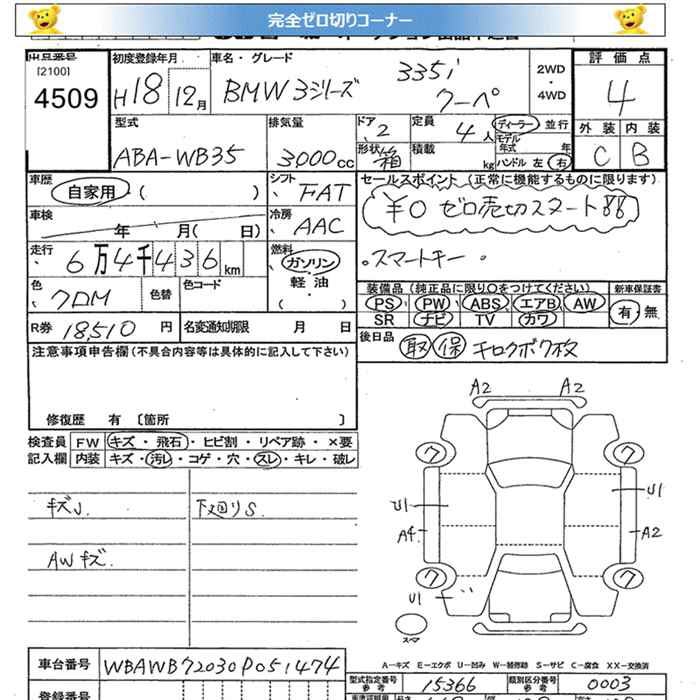 完全ゼロ切りコーナー
出品番号
[2100]
4509
初度登録年月 H18 12月
車名・グレード BMW 3シリーズ 335i クーペ
2WD
・
4WD
評価点
4
外装 内装
C B
型式 ABA-WB35
排気量 3000cc
ドア 2
定員 4人
ディーラー 並行
モデル年式 年
形状 箱
積載 kg
ハンドル 左 右
車歴 自家用 ( )
シフト FAT
セールスポイント (正常に機能するものに限ります)
¥0 ゼロ売切スタート!!
車検 年 月( 日)
冷房 AAC
走行 6万4千436km
燃料 ガソリン
軽油
( )
。スマートキー 。
色 クロM 色替
色コード
装備品 (純正品に限り○をつけてください) 新車保証書
PS PW ABS エアB AW 有・無
SR ナビ TV カワ
R券 18,510 円
名変通知期限 月 日
後日品 取 保 キロクボク枚
注意事項申告欄(不具合内容等は具体的に記入して下さい)
修復歴 有 〔箇所 〕
検査員 FW キズ・飛石・ヒビ割・リペア跡・×要
記入欄 内装 キズ・汚レ・コゲ・穴・スレ・キレ・破レ
キズJ. 下廻りS.
AWキズ.
A2 A2
ワ ワ
U1 U1
A4 A2
ワ ワ
U1
スペア
A─キズ E─エクボ U─凹み W─補修跡 S─サビ C─腐食 XX─交換済
車台番号 WBAWB72030P051474
型式指定番号 参考 15366
類別区分番号 参考 0003
登録番号